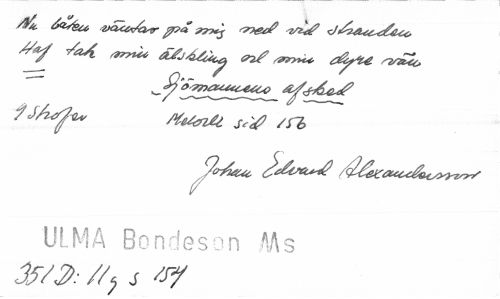 Nu båten väntar på mig ned vid stranden
Haf tak min älskling och min dyre vän
Sjömannens afsked
9 Strofer Melodi sid 156
Johan Edvard Alexandersson
ULMA Bondeson Ms
351 D: 11 g s 154